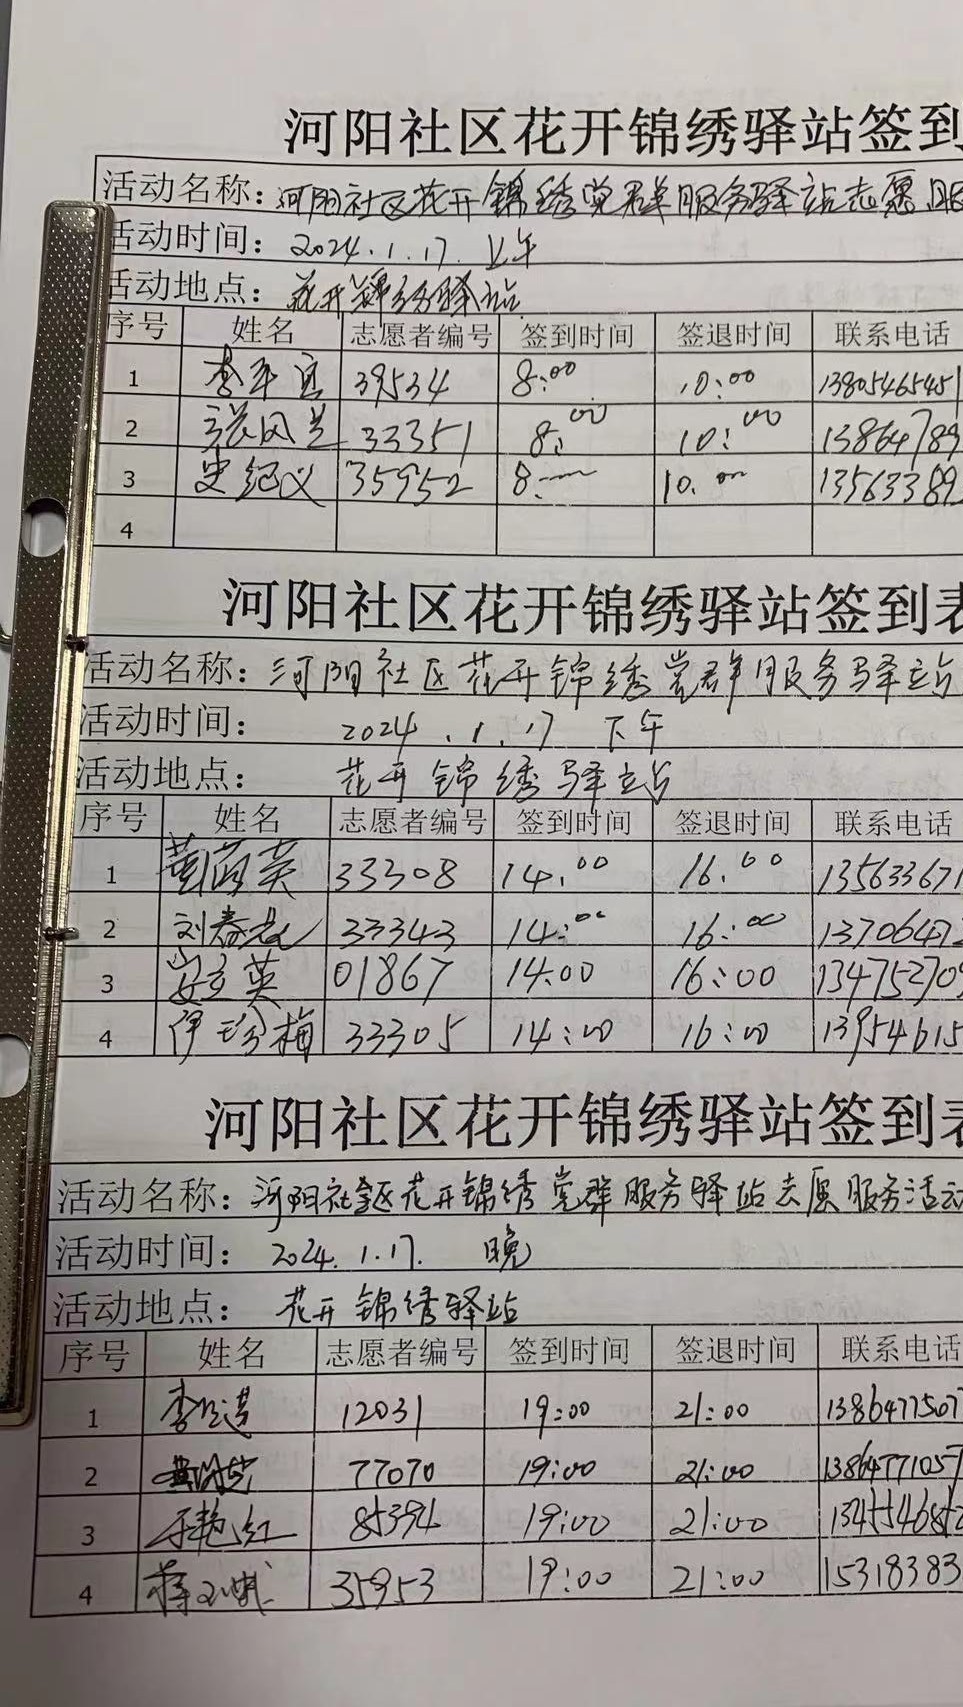 河阳社区花开锦绣驿站签到
活动名称：河阳社区花开锦绣党群服务驿站志愿服
活动时间：2024.1.17. 上午
活动地点：花开锦绣驿站
序号 姓名 志愿者编号 签到时间 签退时间 联系电话
1 39534 8:00 10:00 13805465451
2 33351 8:00 10:00 13864789
3 史纪义 35952 8:00 10:00 13563389
4
河阳社区花开锦绣驿站签到表
活动名称：河阳社区花开锦绣党群服务驿站
活动时间： 2024.1.17 下午
活动地点： 花开锦绣驿站
序号 姓名 志愿者编号 签到时间 签退时间 联系电话
1 33308 14:00 16:00 13563367
2 33343 14:00 16:00 1370647
3 安立英 01867 14:00 16:00 13475270
4 伊珍梅 33305 14:00 16:00 13954615
河阳社区花开锦绣驿站签到表
活动名称：河阳社区花开锦绣党群服务驿站志愿服务活动
活动时间： 2024.1.17. 晚
活动地点： 花开锦绣驿站
序号 姓名 志愿者编号 签到时间 签退时间 联系电话
1 12031 19:00 21:00 1386477507
2 77070 19:00 21:00 1386477105
3 于艳红 85394 19:00 21:00
4 35953 19:00 21:00 15318383